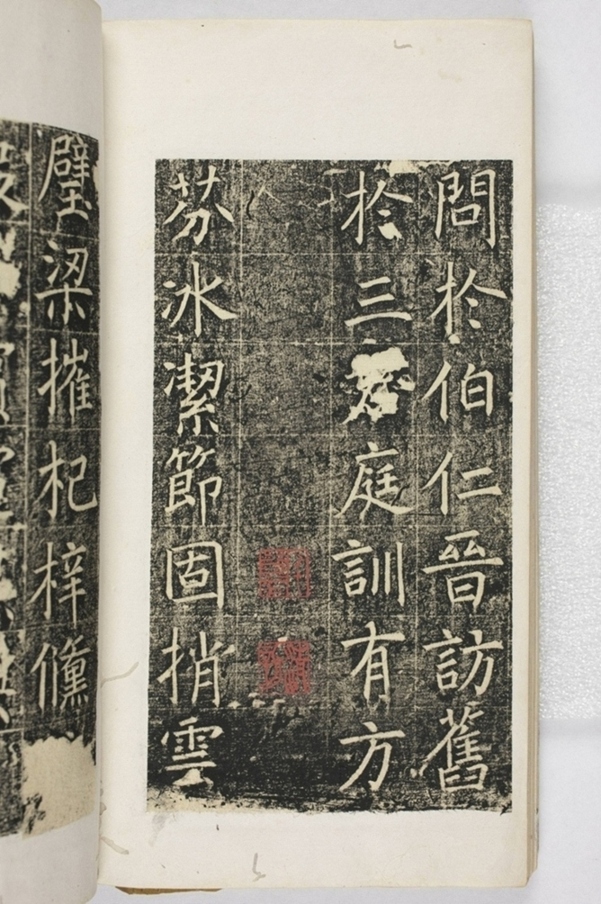 問於伯仁晉訪舊
於三庭訓有方
芬冰潔節固捎雲
璧梁摧杞梓